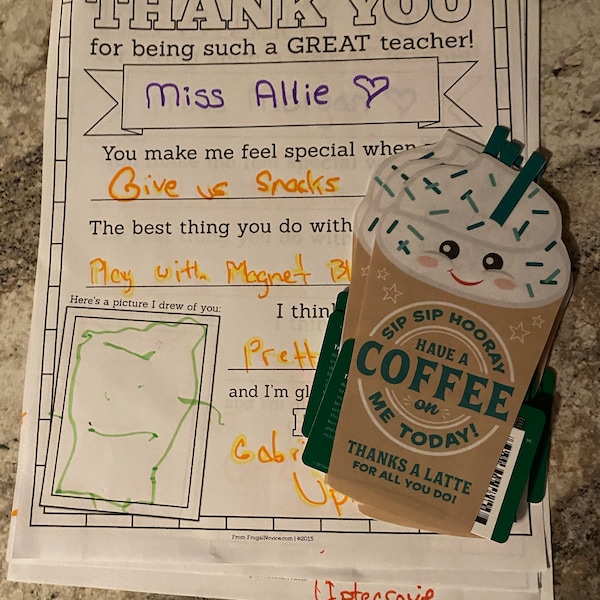 THANK YOU
for being such a GREAT teacher!
Miss Allie
You make me feel special when
Give us Snacks
The best thing you do with
Play with Magnet
Here's a picture I drew of you:
I think
and I'm
From FrugalNovice.com | ©2015
SIP SIP HOORAY
HAVE A
COFFEE
on
ME TODAY!
THANKS A LATTE
FOR ALL YOU DO!